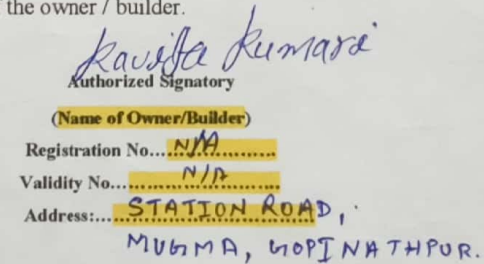 the owner / builder.
Kavita Kumari
Authorized Signatory
(Name of Owner/Builder)
Registration No... N/A ............
Validity No... N/A ............
Address:... STATION ROAD,
MUGMA, GOPINATHPUR.